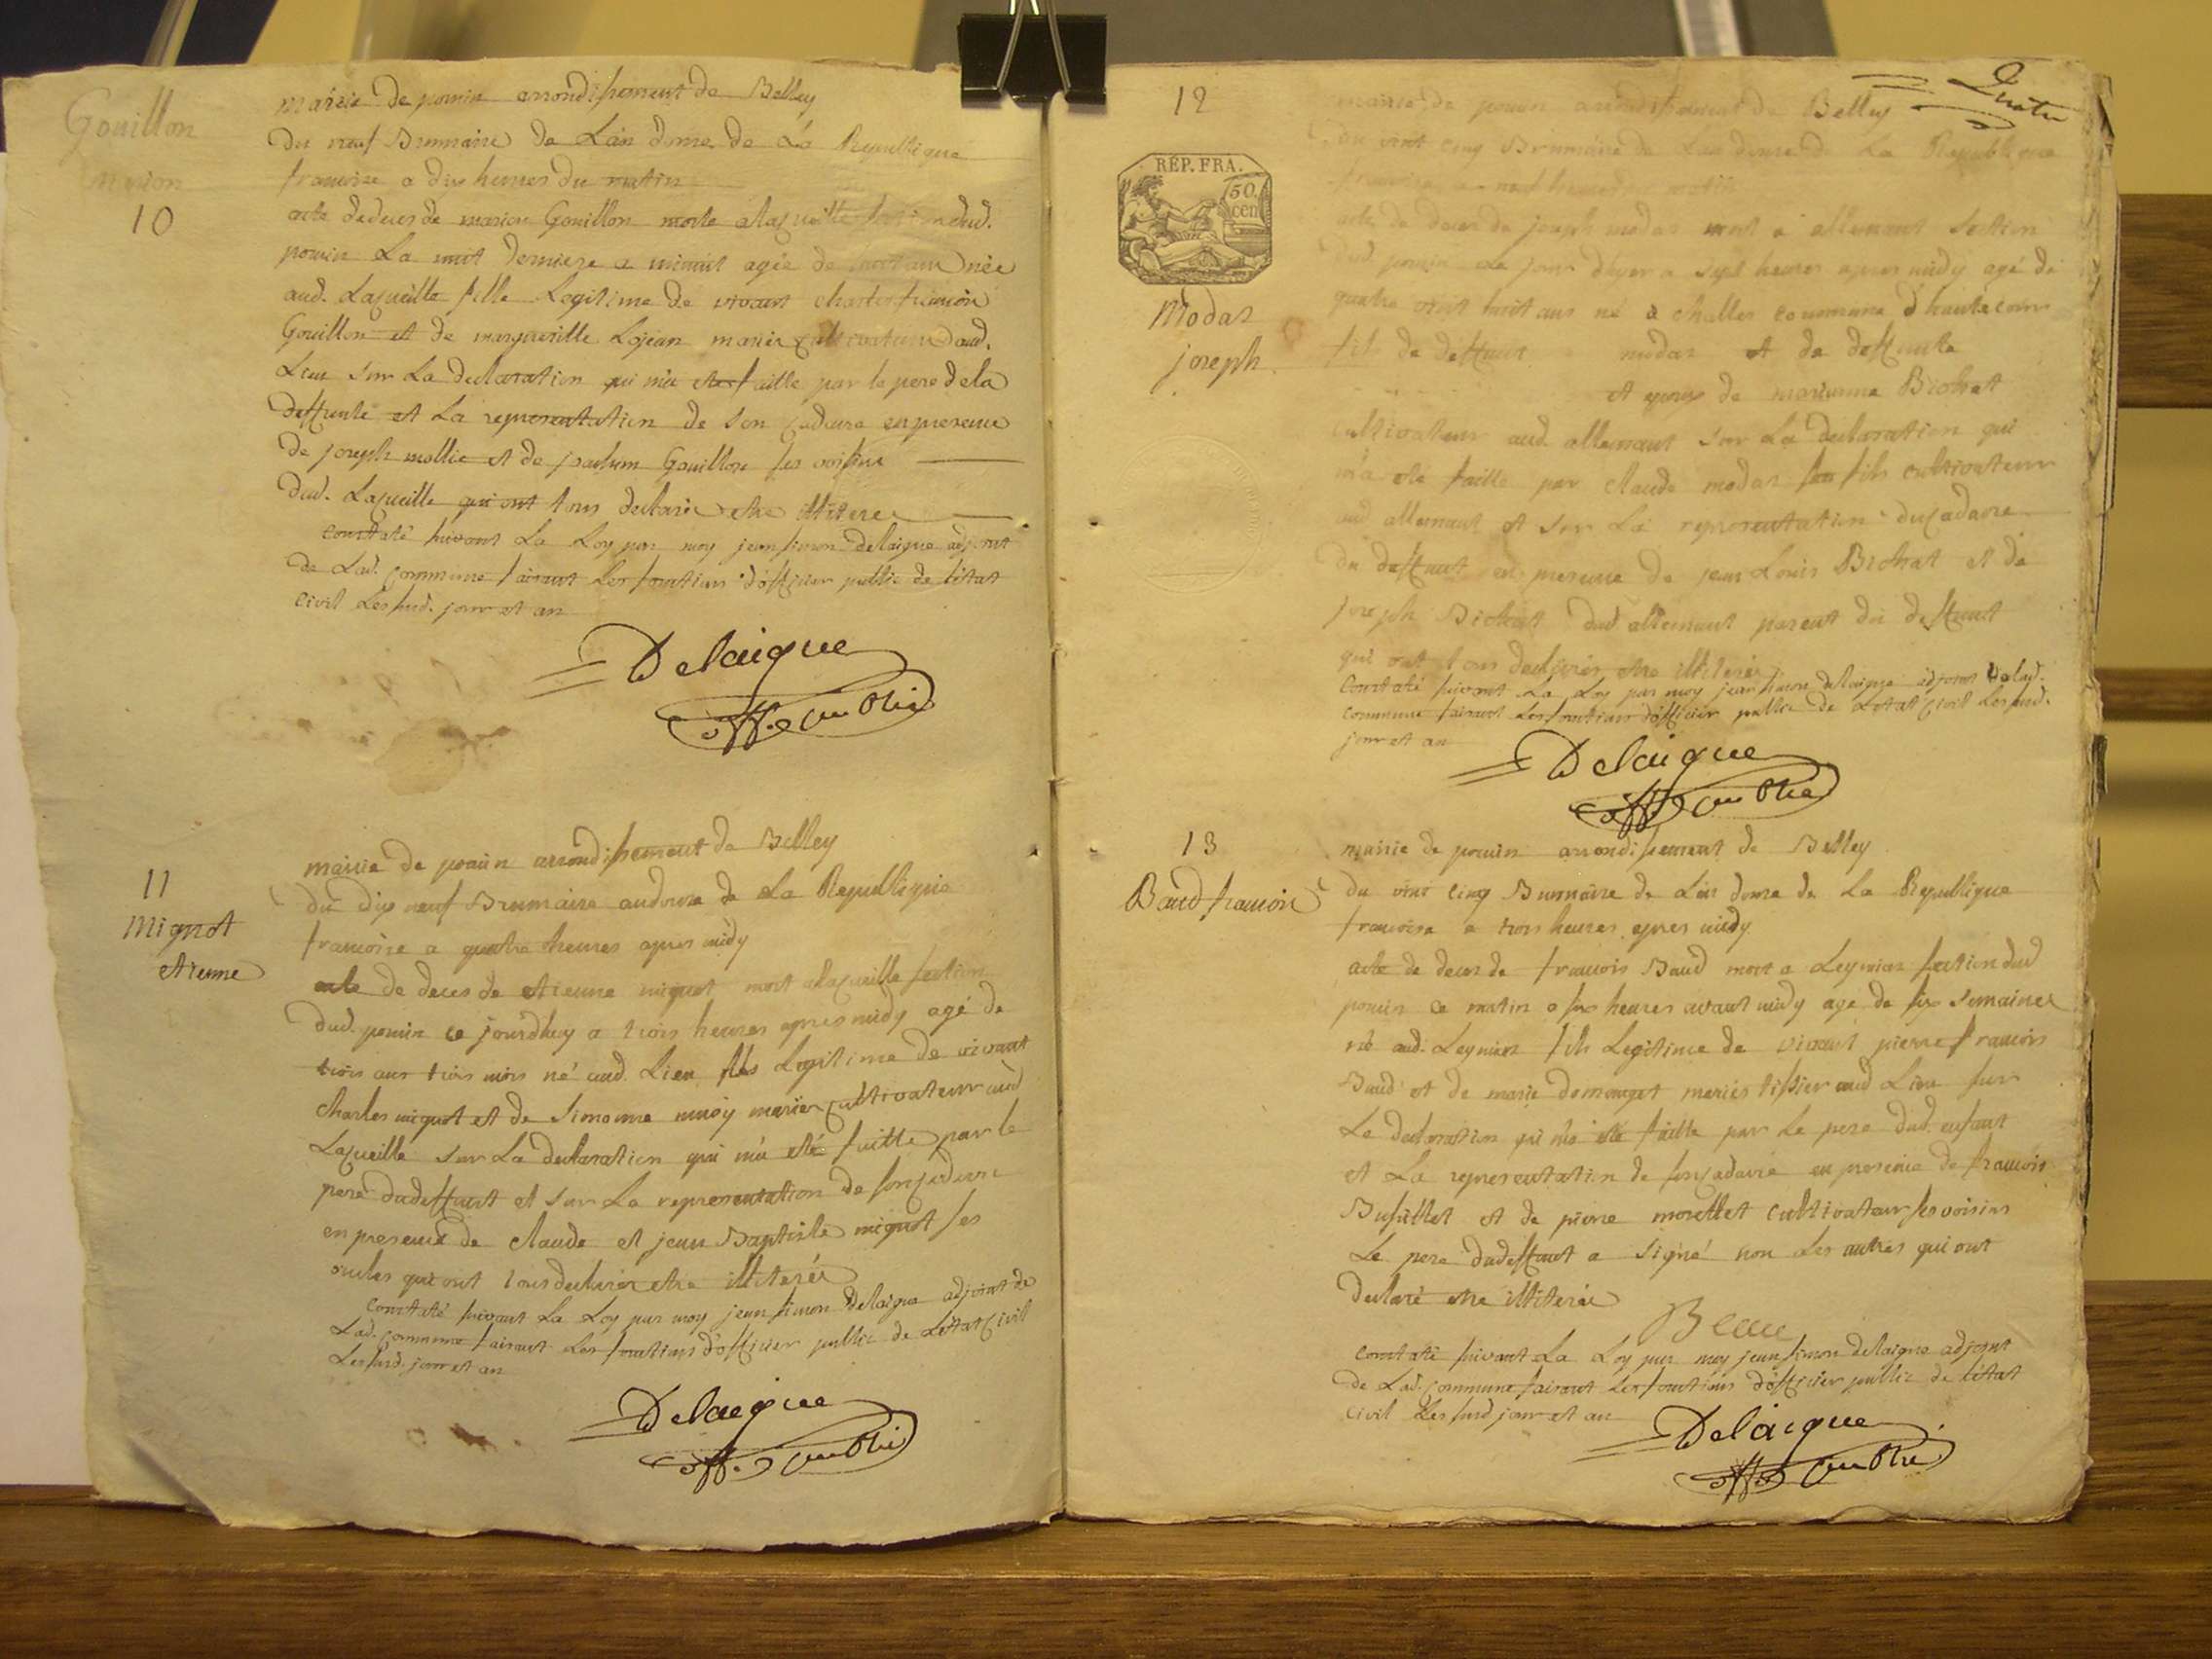 Gouillon
marion
10
mairie de pouin arrondissement de Belley
du neuf Brumaire de Lan douze de La Republique
francoise a dix heures du matin
acte de deces de marion Gouillon morte alaqueille section dud.
pouin La nuit derniere a minuit agée de huit ans née
aud. Laqueille fille Legitime de vivant charles francois
Gouillon et de marguerille Lojean mariés cultivateurs aud.
Lieu sur La declaration qui m'a eté faitte par le pere de la
deffunte et La representation de son cadavre en presence
de joseph mollie et de joachim Gouillon ses voisins
dud. Laqueille qui ont tous declaré etre illiteres
constaté suivant La Loy par moy jean simon delaigue adjoint
de Lad. commune faisant les fonctions d'officier public de l'état
civil Les sud. jour et an
Delaigue
off. public
11
Mignot
etienne
mairie de pouin arrondissement de Belley
du dix neuf Brumaire an douze de La Republique
francoise a quatre heures apres midy
acte de deces de etienne mignot mort a laqueille section
dud. pouin ce jourdhuy a trois heures apres midy agé de
trois ans trois mois né aud. Lieu fils Legitime de vivant
charles mignot et de simonne mariés cultivateur aud
Laqueille sur La declaration qui m'a eté faitte par le
pere du deffunt et sur La representation de son cadavre
en presence de claude et jean Baptiste mignot ses
oncles qui ont tous declarés etre illiterés
constaté suivant La Loy par moy jean simon delaigue adjoint de
Lad. commune faisant Les fonctions d'officier public de L'état civil
Les sud. jour et an
Delaigue
off. public
12
Quatre
RÉP. FRA.
50
cen
Modas
joseph
mairie de pouin arrondissement de Belley
du vint cinq Brumaire de Lan douze de La Republique
francoise a neuf heures du matin
acte de deces de joseph modas mort a allemant section
dud. pouin Le jour d'hyer a sept heures apres midy agé de
quatre vint huit ans né a challes commune d'hautecour
fils de deffunt modas et de deffunte
et epoux de marianne Bichat
cultivateur aud. allemant sur La declaration qui
m'a eté faitte par claude modas son fils cultivateur
aud allemant et sur La representation du cadavre
du deffunt en presence de jean Louis Bichat et de
joseph Bichat dud. allemant parent du deffunt
qui ont tous declarés etre illiterés
constaté suivant La Loy par moy jean simon delaigue adjoint de lad.
commune faisant Les fonctions d'officier public de Letat civil Les sud.
jour et an
Delaigue
off. public
13
Baud francois
mairie de pouin arrondissement de Belley
du vint cinq Brumaire de Lan douze de La Republique
francoise a trois heures apres midy
acte de deces de francois Baud mort a Leymiat section dud
pouin ce matin a six heures avant midy agé de six semaines
né aud. Leymiat fils Legitime de vivant pierre francois
Baud et de marie demonget mariés tissier aud Lieu sur
Le declaration qui m'a eté faitte par Le pere dud. enfant
et La representation de son cadavre en presence de francois
Bufillet et de pierre morellet cultivateur ses voisins
Le pere du deffunt a signé non Les autres qui ont
declaré etre illiterés
Beau
constaté suivant La Loy par moy jean simon delaigue adjoint
de Lad. commune faisant Les fonctions d'officier public de l'état
civil Les sud jour et an
Delaigue
off. public